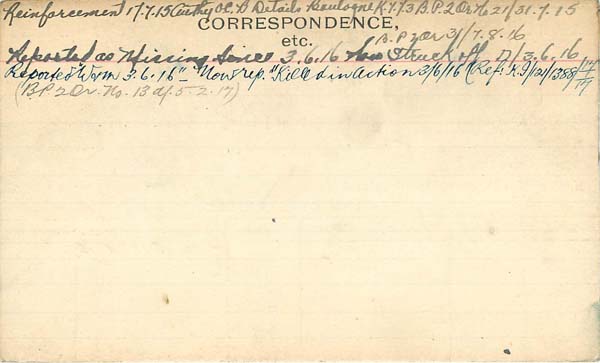 Reinforcement 17.7.15 Authy O.C. D Details Boulogne K.7.73 B.P.2 Or No 21/31.7.15
CORRESPONDENCE,
etc.
B.P 2 Or 31/7.8.16
Reported as Missing Since 3.6.16 Now Struck off D/3.6.16
Reported "W & M 3.6.16" Now rep. "Killed in action 3/6/16 (Ref:
(B.P 2 Or. No. 13 of 5-2-17)